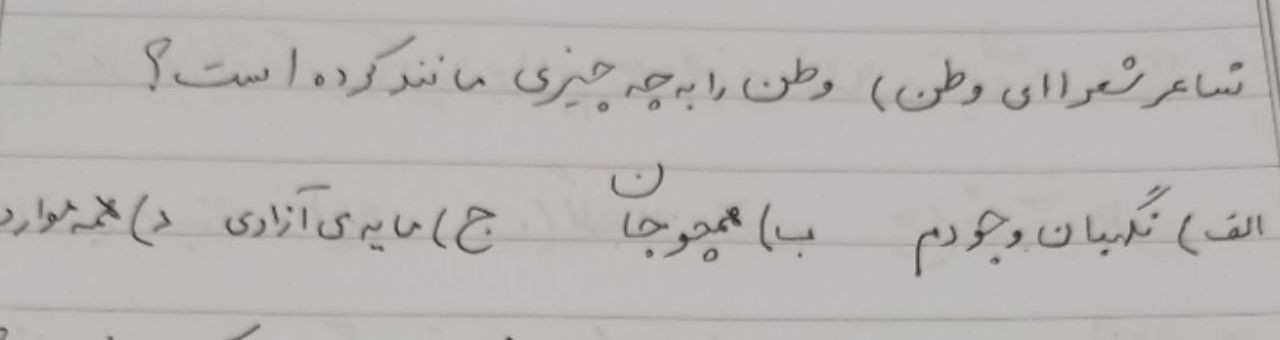 شاعر شعر (ای وطن) وطن را به چه چیزی مانند کرده است؟
الف) نگهبان وجودم ب) همچو جان ج) مایه ی آزادی د) همه موارد